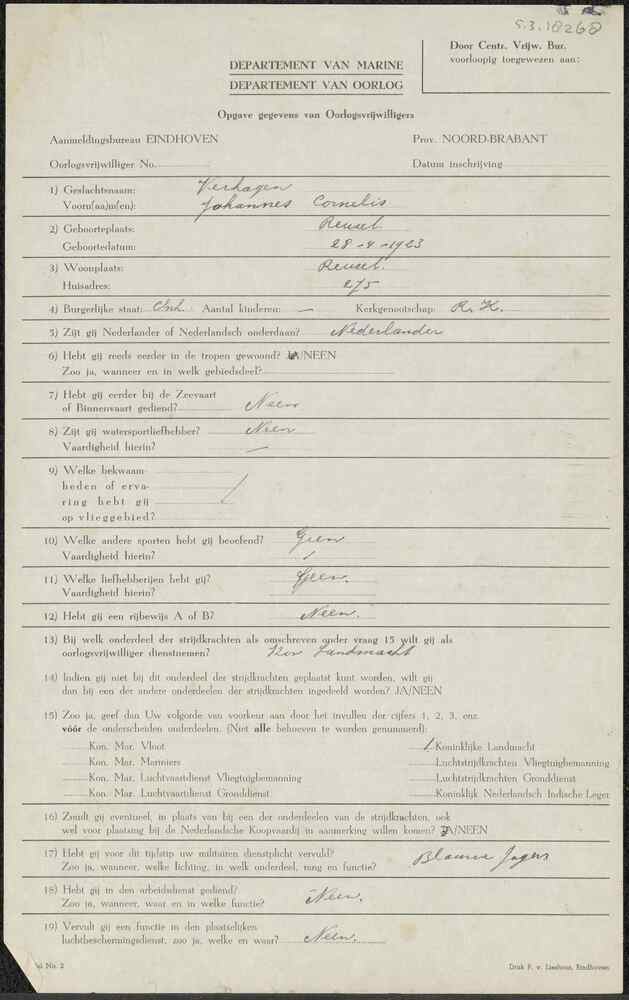 S.3.18268
Door Centr. Vrijw. Bur.
voorloopig toegewezen aan:
DEPARTEMENT VAN MARINE
DEPARTEMENT VAN OORLOG
Opgave gegevens van Oorlogsvrijwilligers
Aanmeldingsbureau EINDHOVEN Prov. NOORD-BRABANT
Oorlogsvrijwilliger No. Datum inschrijving
1) Geslachtsnaam: Verhagen
Voorn(aa)m(en): Johannes Cornelis
2) Geboorteplaats: Reusel
Geboortedatum: 28-4-1923
3) Woonplaats: Reusel.
Huisadres:
4) Burgerlijke staat: Onh. Aantal kinderen: — Kerkgenootschap R.K.
5) Zijt gij Nederlander of Nederlandsch onderdaan? Nederlander
6) Hebt gij reeds eerder in de tropen gewoond? JA/NEEN
Zoo ja, wanneer en in welk gebiedsdeel?
7) Hebt gij eerder bij de Zeevaart
of Binnenvaart gediend? Neen
8) Zijt gij watersportliefhebber? Neen
Vaardigheid hierin? —
9) Welke bekwaam-
heden of erva-
ring hebt gij /
op vlieggebied?
10) Welke andere sporten hebt gij beoefend? Geen
Vaardigheid hierin? /
11) Welke liefhebberijen hebt gij? Geen.
Vaardigheid hierin?
12) Hebt gij een rijbewijs A of B? Neen.
13) Bij welk onderdeel der strijdkrachten als omschreven onder vraag 15 wilt gij als
oorlogsvrijwilliger dienstnemen? Kon Landmacht
14) Indien gij niet bij dit onderdeel der strijdkrachten geplaatst kunt worden, wilt gij
dan bij een der andere onderdeelen der strijdkrachten ingedeeld worden? JA/NEEN
15) Zoo ja, geef dan Uw volgorde van voorkeur aan door het invullen der cijfers 1, 2, 3, enz.
vóór de onderscheiden onderdeelen. (Niet alle behoeven te worden genummerd):
Kon. Mar. Vloot 1 Koninklijke Landmacht
Kon. Mar. Mariniers Luchtstrijdkrachten Vliegtuigbemanning
Kon. Mar. Luchtvaartdienst Vliegtuigbemanning Luchtstrijdkrachten Gronddienst
Kon. Mar. Luchtvaartdienst Gronddienst Koninklijk Nederlandsch Indische Leger
16) Zoudt gij eventueel, in plaats van bij een der onderdeelen van de strijdkrachten, ook
wel voor plaatsing bij de Nederlandsche Koopvaardij in aanmerking willen komen? JA/NEEN
17) Hebt gij voor dit tijdstip uw militairen dienstplicht vervuld? Blauwe Jagers
Zoo ja, wanneer, welke lichting, in welk onderdeel, rang en functie?
18) Hebt gij in den arbeidsdienst gediend?
Zoo ja, wanneer, waar en in welke functie? Neen.
19) Vervult gij een functie in den plaatselijken
luchtbeschermingsdienst, zoo ja, welke en waar? Neen.
No. 2 Druk F. v. Lieshout, Eindhoven